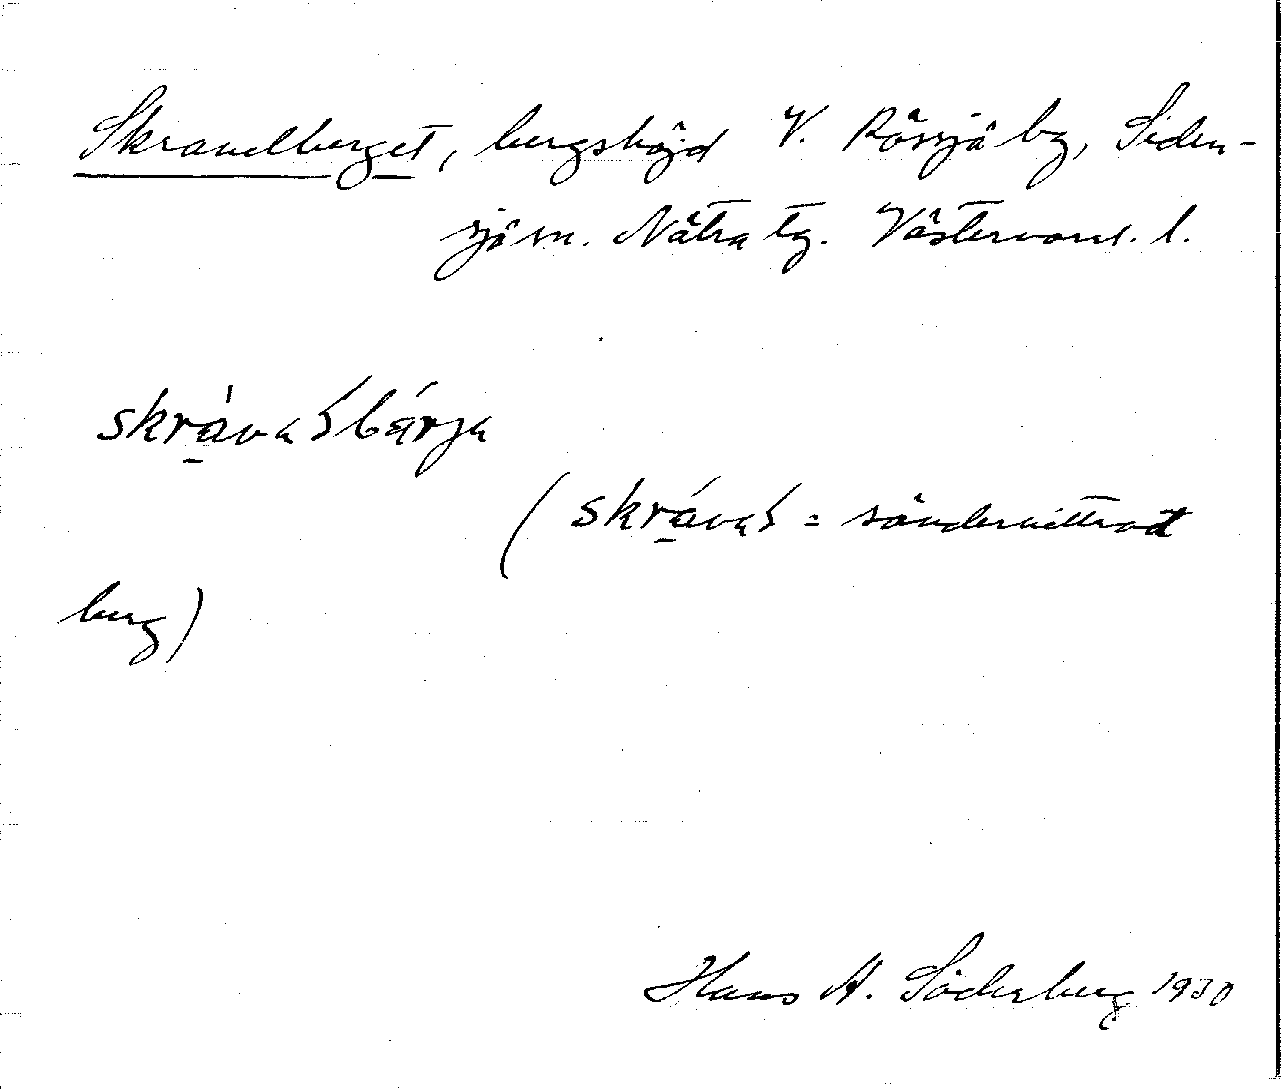 Skravelberget, bergshöjd V. Rössjö by, Siden-
sjö sn. Nätra tg. Västernorrl. l.
skràvaɬbárja
(skrávaɬ = söndervittrat
berg)
Hans A. Söderberg 1930